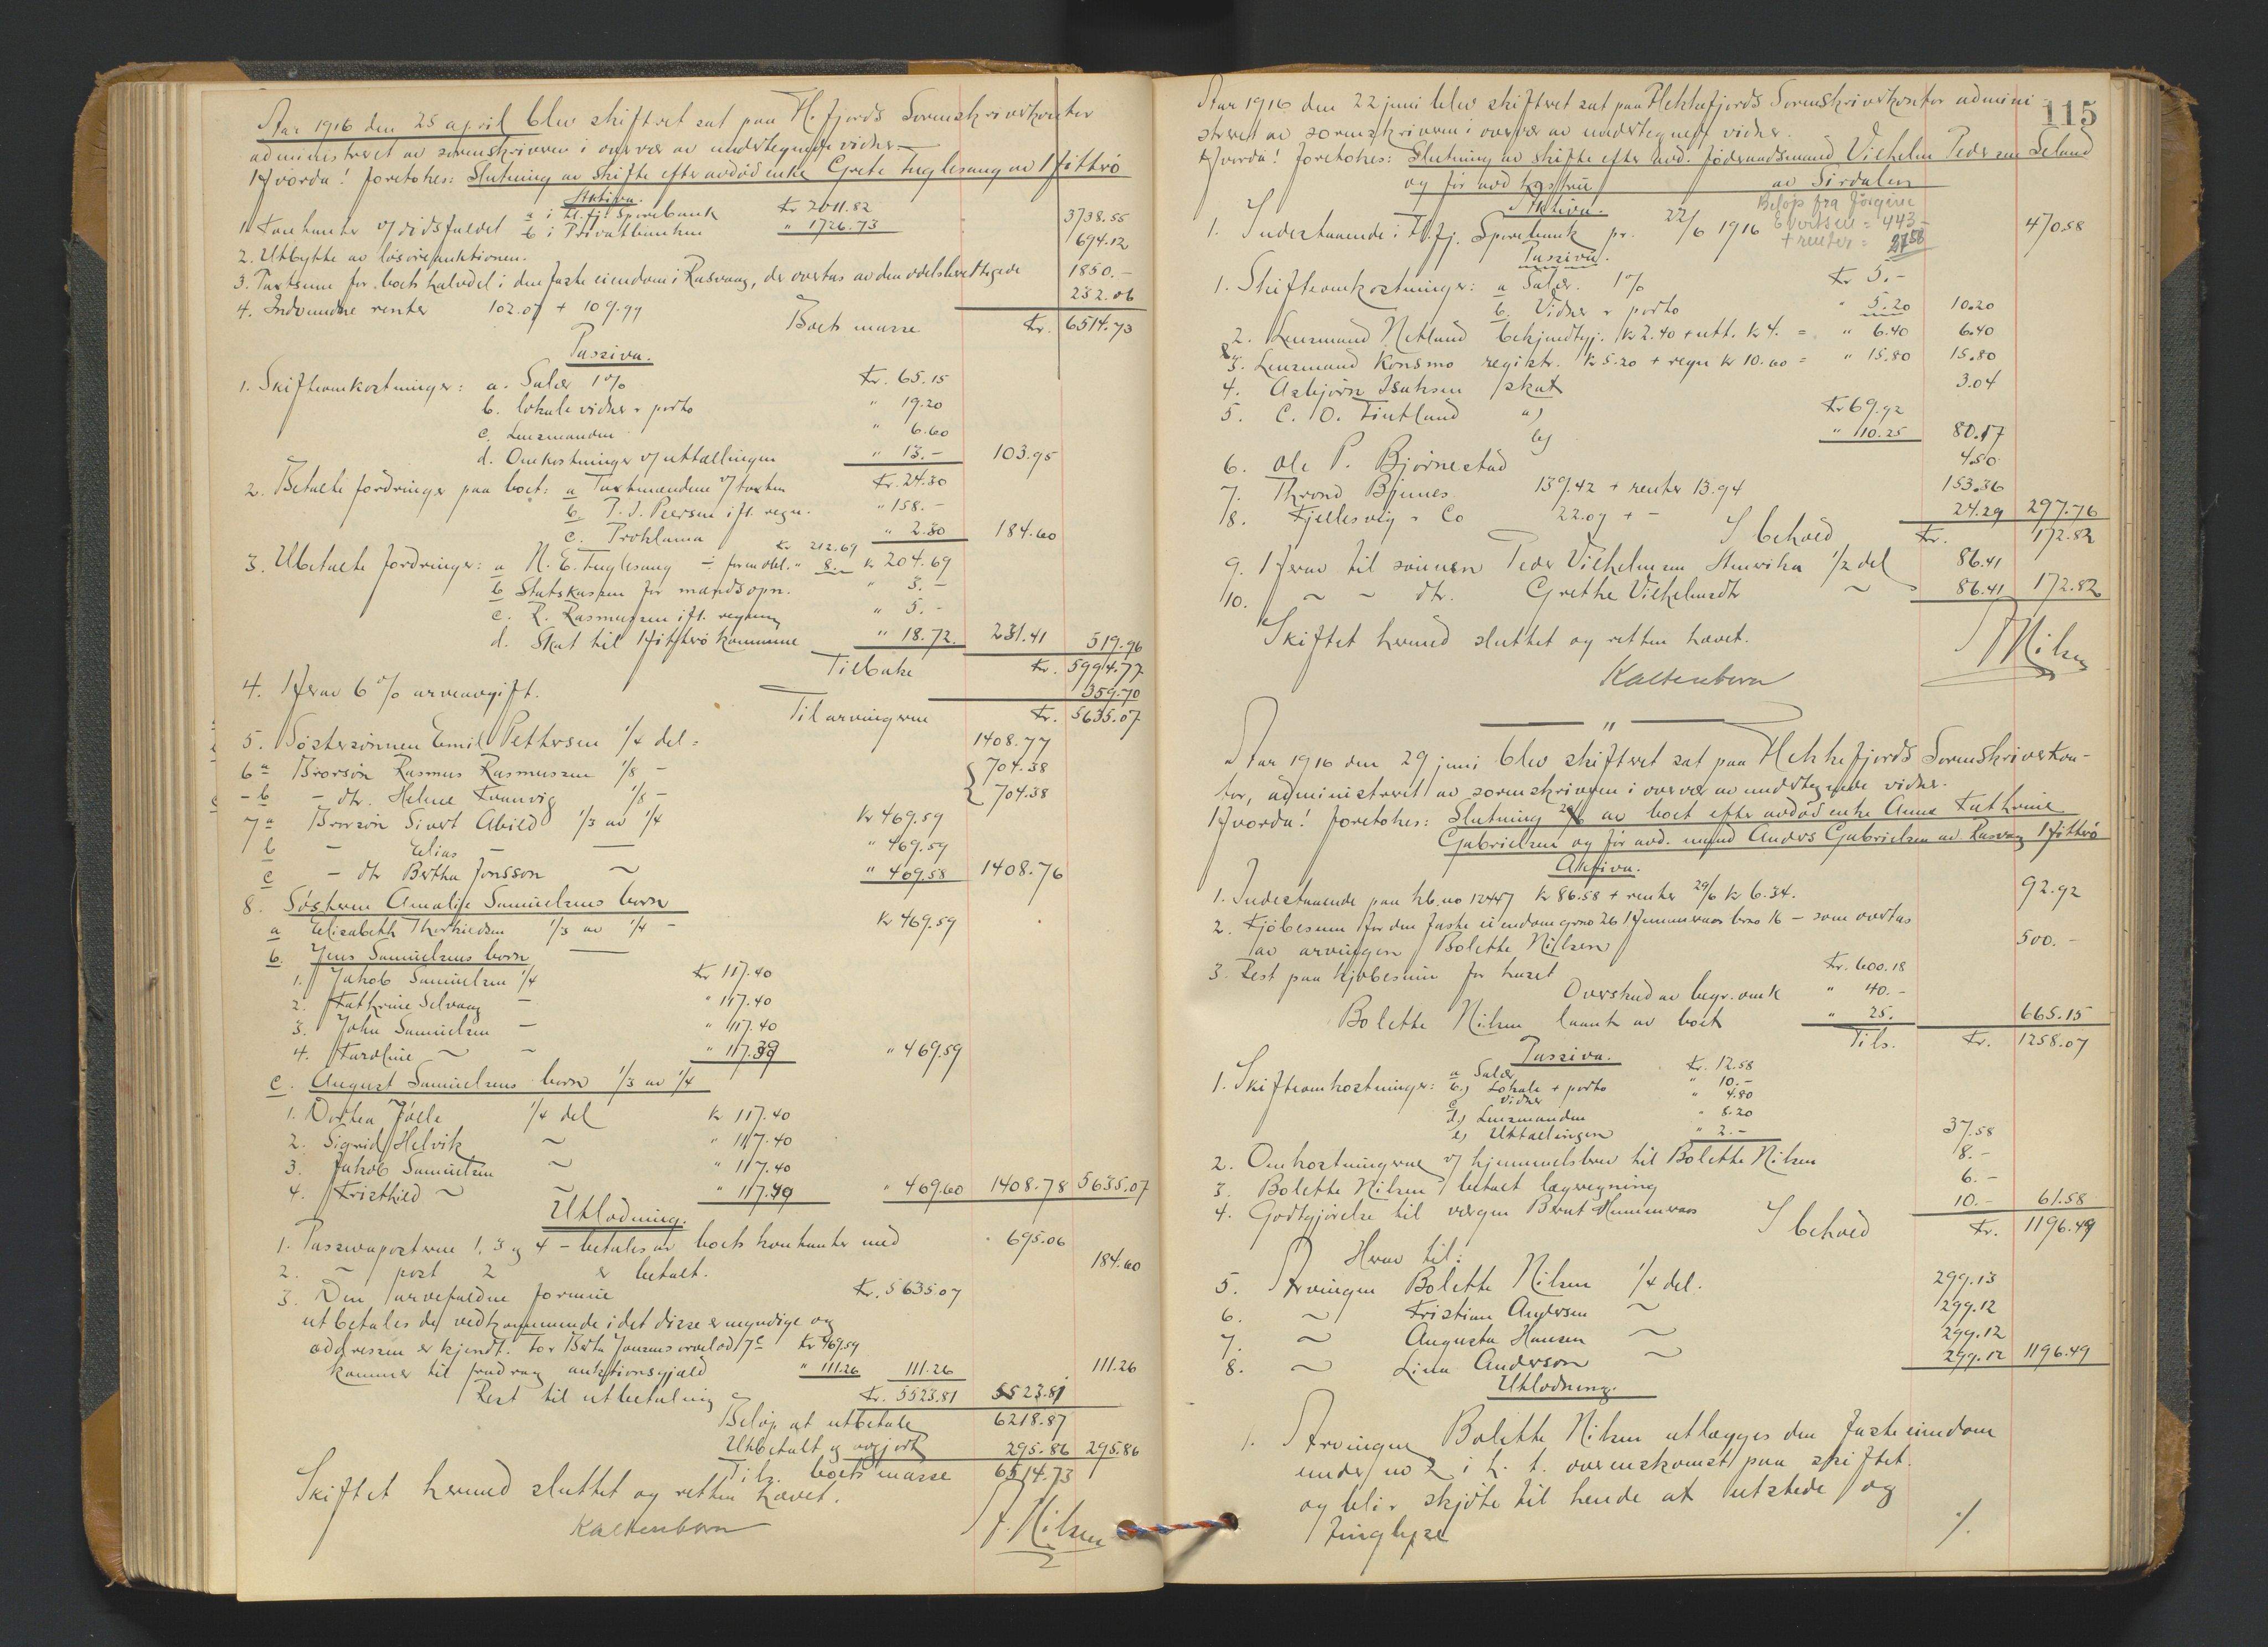 Aar 1916 den 25 april blev skiftret sat paa H.fjords Sorenskriverkontor
administreret av sorenskriveren i overvær av undertegnede vidner.
Hvorda! foretokes: Slutning av skifte efter avdöd enke Grete Fuglesang av Hitterö
Aktiva.
1. Kontanter v/ dödsfaldet a i H.fj. Sparebank Kr 2011.82
b i Privatbanken " 1726.73 3738.55
2. Utbytte av lösöreauktionen. 694.12
3. Taxtsum for boets halvdel i den faste eiendom i Rasvaag, der overtas av den odelsberettigede 1850.-
4. Indvundne renter 102.07 + 109.99 232.06
Boets masse Kr. 6514.73
Passiva.
1. Skifteomkostninger: a. Salær 1% Kr. 65.15
b. lokale vidner + porto " 19.20
c. Lensmanden " 6.60
d. Omkostninger v/ uttællingen " 13.- 103.95
2. Betalte fordringer paa boet: a Taxtmændene v/ taxten Kr. 24.30
b. P. J. Peersen ifl. regn. " 158.-
c. Proklama " 2.30 184.60
3. Ubetalte fordringer: a N. E. Fuglesang Kr 212.69 ÷ for en obl. " 8.- Kr 204.69
b Statskassen for mandsopn. " 3.-
c. R. Rasmussen ifl. regning " 5.-
d. Skat til Hitterö kommune " 18.72. 231.41 519.96
Tilbake Kr. 5994.77
4. Herav 6% arveavgift. 359.70
Til arvingerne Kr. 5635.07
5. Söstersönnen Emil Pettersen 1/4 del = 1408.77
6 a Brorsön Rasmus Rasmussen 1/8 - 704.38
- b - dtr. Helene Tranvig 1/8 - 704.38
7 a Brorsön Sivert Abild 1/3 av 1/4 Kr 469.59
b - Elias - — " 469.59
c - dtr Bertha Jonsson ~ " 469.58 1408.76
8. Sösteren Amalie Samuelsens børn
a Elisabeth Thorkildsen 1/3 av 1/4 - Kr 469.59
b. Jens Samuelsens børn —
1. Jakob Samuelsen 1/4 Kr 117.40
2. Kathrine Selvaag - " 117.40
3. John Samuelsen - " 117.40
4. Karoline ~ ~ " 117.39 " 469.59
c. August Samuelsens børn 1/3 av 1/4
1. Dortea Jölle 1/4 del Kr 117.40
2. Sigrid Helvik ~ " 117.40
3. Jakob Samuelsen ~ " 117.40
4. Kristhild ~ ~ " 117.40 " 469.60 1408.78 5635.07
Utlodning.
1. Passivaposterne 1, 3 og 4 - betales av boets kontanter med 695.06
2. ~ post 2 er betalt. 184.60
3. Den arvefaldne formue Kr. 5635.07
utbetales de vedkommende idet disse er myndige og
addressen er kjendt. For Berta Jonsens arvelod 7c Kr 469.59
kommer til fradrag auktionsgjæld " 111.26 111.26 111.26
Rest til utbetaling Kr. 5523.81 5523.81
Belöp at utbetale 6218.87
Utbetalt og avgjort 295.86 295.86
Tils. boets masse 6514.73
Skiftet hermed sluttet og retten hævet.
Kaltenborn J. Nilsen
115
Aar 1916 den 22 juni blev skiftret sat paa Hekkefjords Sorenskriverkontor admini-
streret av sorenskriveren i overvær av undertegnede vidner.
Hvorda! foretokes: Slutning av skifte efter avd. föderaadsmand Vilhelm Pedersen Seland
og för avd hustru av Sirdalen
Aktiva.
Belöp fra Jörgine
1. Indestaaende i H.fj. Sparebank pr. 22/6 1916 Evertsen = 443- 470.58
+ renter = 27.58
Passiva.
1. Skifteomkostninger: a Salær. 1% Kr 5.-
b. Vidner + porto " 5.20 10.20
2. Lensmand Netland bekjendtgj. Kr 2.40 + utt. Kr 4. = " 6.40 6.40
3. Lensmand Konsmo registr. Kr 5.20 + regn Kr 10.60 = " 15.80 15.80
4. Asbjörn Isaksen skat 3.04
5. C. O. Fintland a) Kr 69.92
b) " 10.25 80.17
6. Ole P. Björnestad 4.50
7. Thrond Bjunes. 139.42 + renter 13.94 153.36
8. Fjellesvig & Co 22.07 + - 24.29 297.76
I behold Kr. 172.82
9. Herav til sönnen Peder Vilhelmsen Amerika 1/2 del 86.41
10. ~ ~ dtr. Grethe Vilhelmsdtr ~ 86.41 172.82
Skiftet hermed sluttet og retten hævet.
Kaltenborn J. Nilsen
— " —
Aar 1916 den 29 juni blev skiftret sat paa Hekkefjords Sorenskriverkon-
tor, administreret av sorenskriveren i overvær av undertegnede vidner.
Hvorda! foretokes: Slutning 29/6 av boet efter avdöd enke Anne Kathrine
Gabrielsen og för avd. mand Anders Gabrielsen av Rasvag Hitterö
Aktiva.
1. Indestaaende paa hb. no 12447 Kr 86.58 + renter 29/6 Kr 6.34. 92.92
2. Kjöbesum for den faste eiendom grno 26 Hummeraas brno 16 - som overtas
av arvingen Bolette Nilsen 500.-
3. Rest paa kjöbesum for huset Kr. 600.18
Overskud av begr. omk " 40.-
Bolette Nilsen laant av boet " 25. 665.15
Tils. Kr. 1258.07
Passiva.
1. Skifteomkostninger: a Salær Kr. 12.58
b) Lokale + porto " 10.-
c Vidner " 4.80
d) Lensmanden " 8.20
e) Uttællingen " 2.- 37.58
2. Omkostningerne v/ hjemmelsbrev til Bolette Nilsen 8.-
3. Bolette Nilsen betalt lægeregning 6.-
4. Godtgjörelse til værgen Bernt Hummeraas 10.- 61.58
I behold Kr. 1196.49
Herav til:
5. Arvingen Bolette Nilsen 1/4 del. 299.13
6. ~ Kristian Andersen ~ 299.12
7. ~ Augusta Hansen ~ 299.12
8. ~ Lina Anderson ~ 299.12 1196.49
Utlodning.
1. Arvingen Bolette Nilsen utlægges den faste eiendom
under no 2 i h. t. overenskomst paa skiftet.
og blir skjöte til hende at utstede og
tinglyse ./.